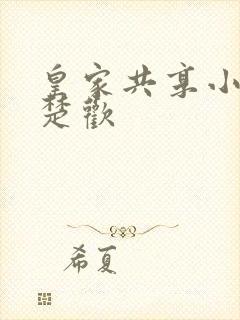 皇家共享小
楚歡
希夏